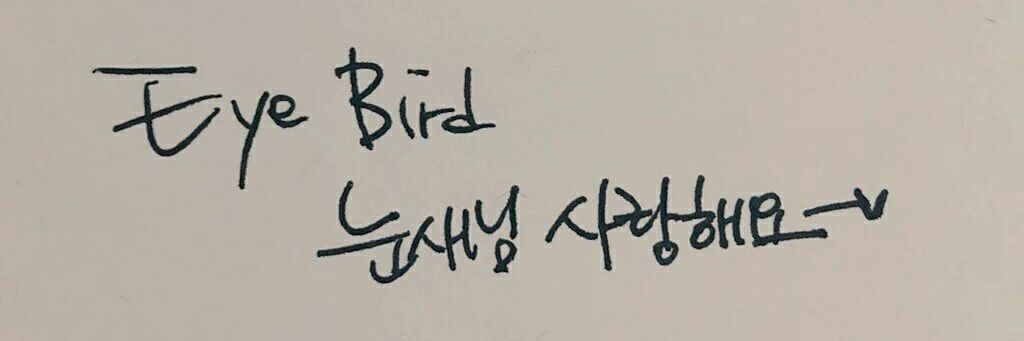 Eye Bird
눈새님 사랑해요